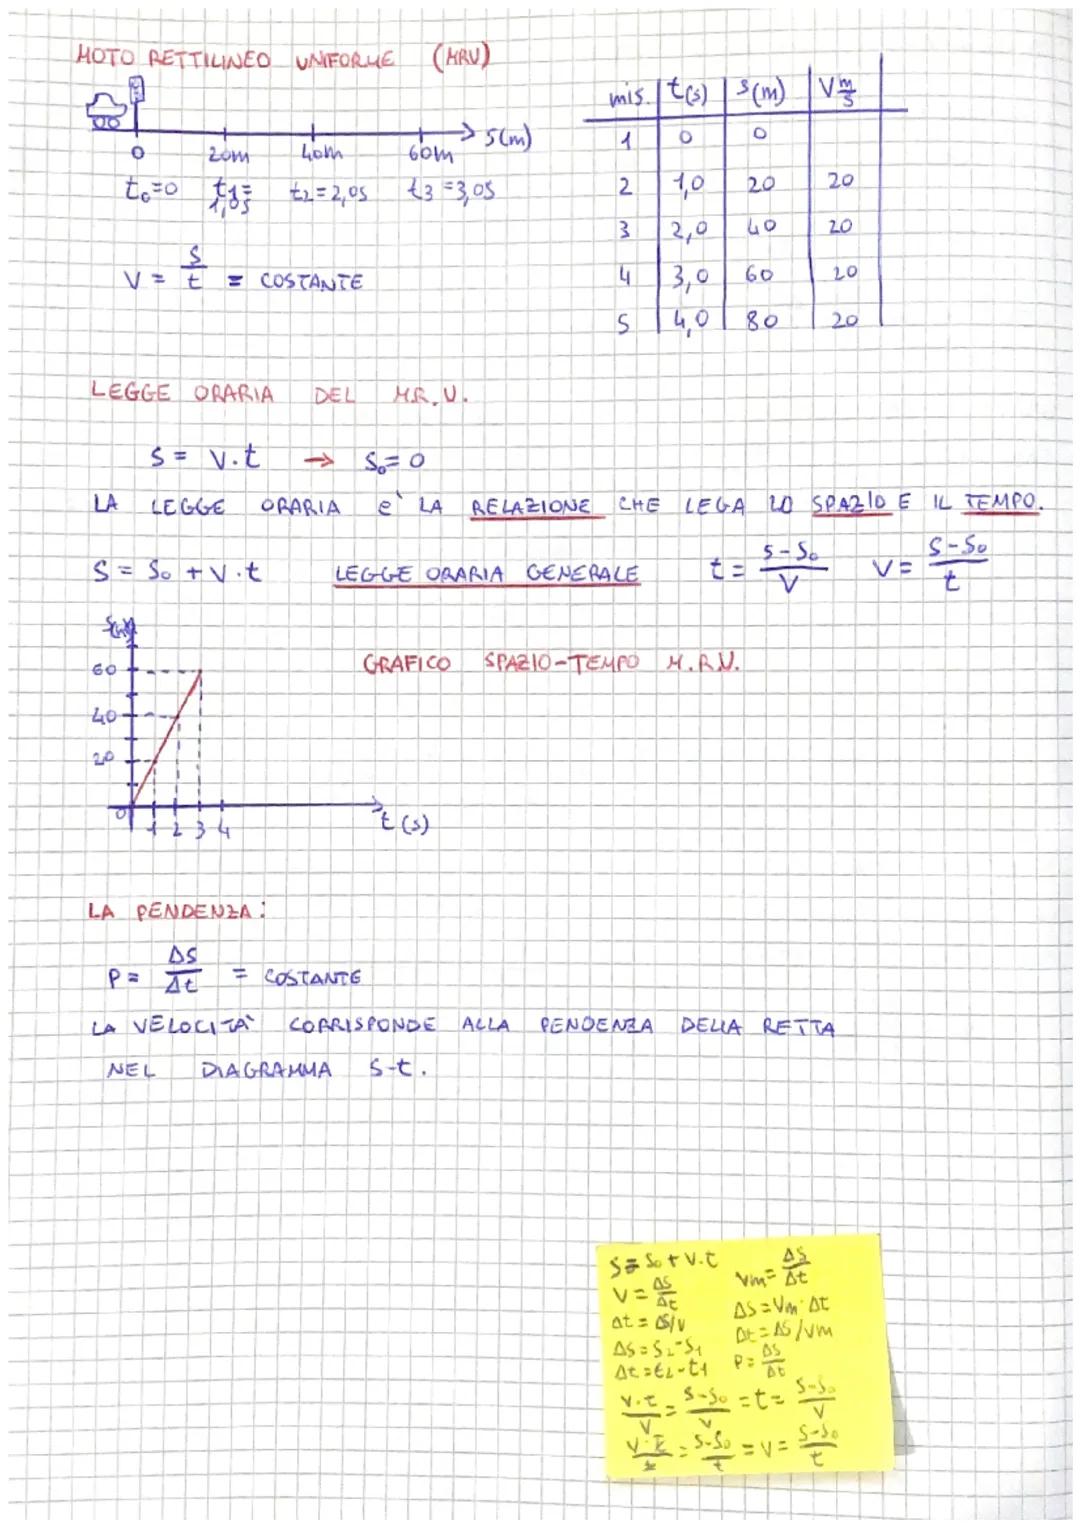 MOTO RETTILINEO UNIFORME (MRU)
S(m)
0 20m 40m 60m
t₀=0 t₁=1,0s t₂=2,0s t₃=3,0s
V = S/t = COSTANTE
mis. t(s) s(m) V m/s
1 0 0
2 1,0 20 20
3 2,0 40 20
4 3,0 60 20
5 4,0 80 20
LEGGE ORARIA DEL M.R.U.
S = V·t → S₀=0
LA LEGGE ORARIA e` LA RELAZIONE CHE LEGA LO SPAZIO E IL TEMPO.
S = S₀ + V·t LEGGE ORARIA GENERALE t = S-S₀/V V = S-S₀/t
GRAFICO SPAZIO-TEMPO M.R.U.
60
40
20
0 1 2 3 4 t(s)
LA PENDENZA:
P = ΔS/Δt = COSTANTE
LA VELOCITA` CORRISPONDE ALLA PENDENZA DELLA RETTA
NEL DIAGRAMMA S-t.
S = S₀ + V·t Vm = ΔS/Δt
V = ΔS/Δt ΔS = Vm·Δt
Δt = ΔS/V Δt = ΔS/Vm
ΔS = S₂-S₁ P = ΔS/Δt
Δt = t₂-t₁
V·t/V = S-S₀/V = t = S-S₀/V
V·t/t = S-S₀/t = V = S-S₀/t